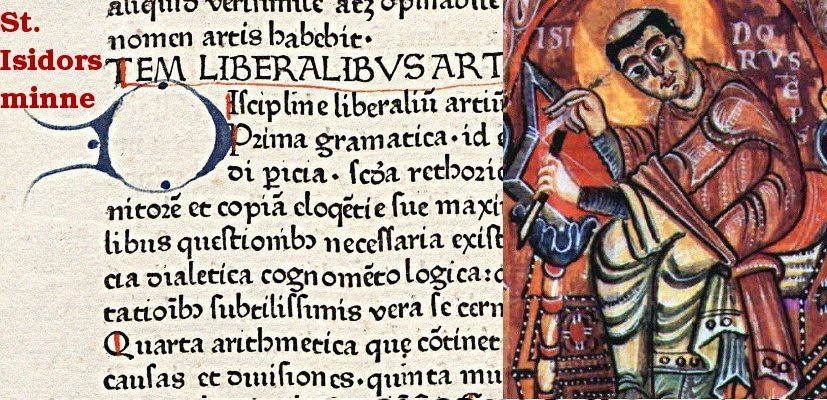 St.
Isidors
minne
aliquid verisimile atq; opinabile
nomen artis habebit.
TEM LIBERALIBVS ART
DIscipline liberaliū artiū
Prima gramatica. id e
di picia. scďa rethoric
nitorē et copiā eloqētie sue maxi
libus questionibꝰ necessaria exist
cia dialetica cognomēto logica: q
tatioībꝰ subtilissimis vera se cern
Quarta arithmetica quę cōtinet
causas et diuisiones. quinta mu
ISI
DO
RVS
EP
S